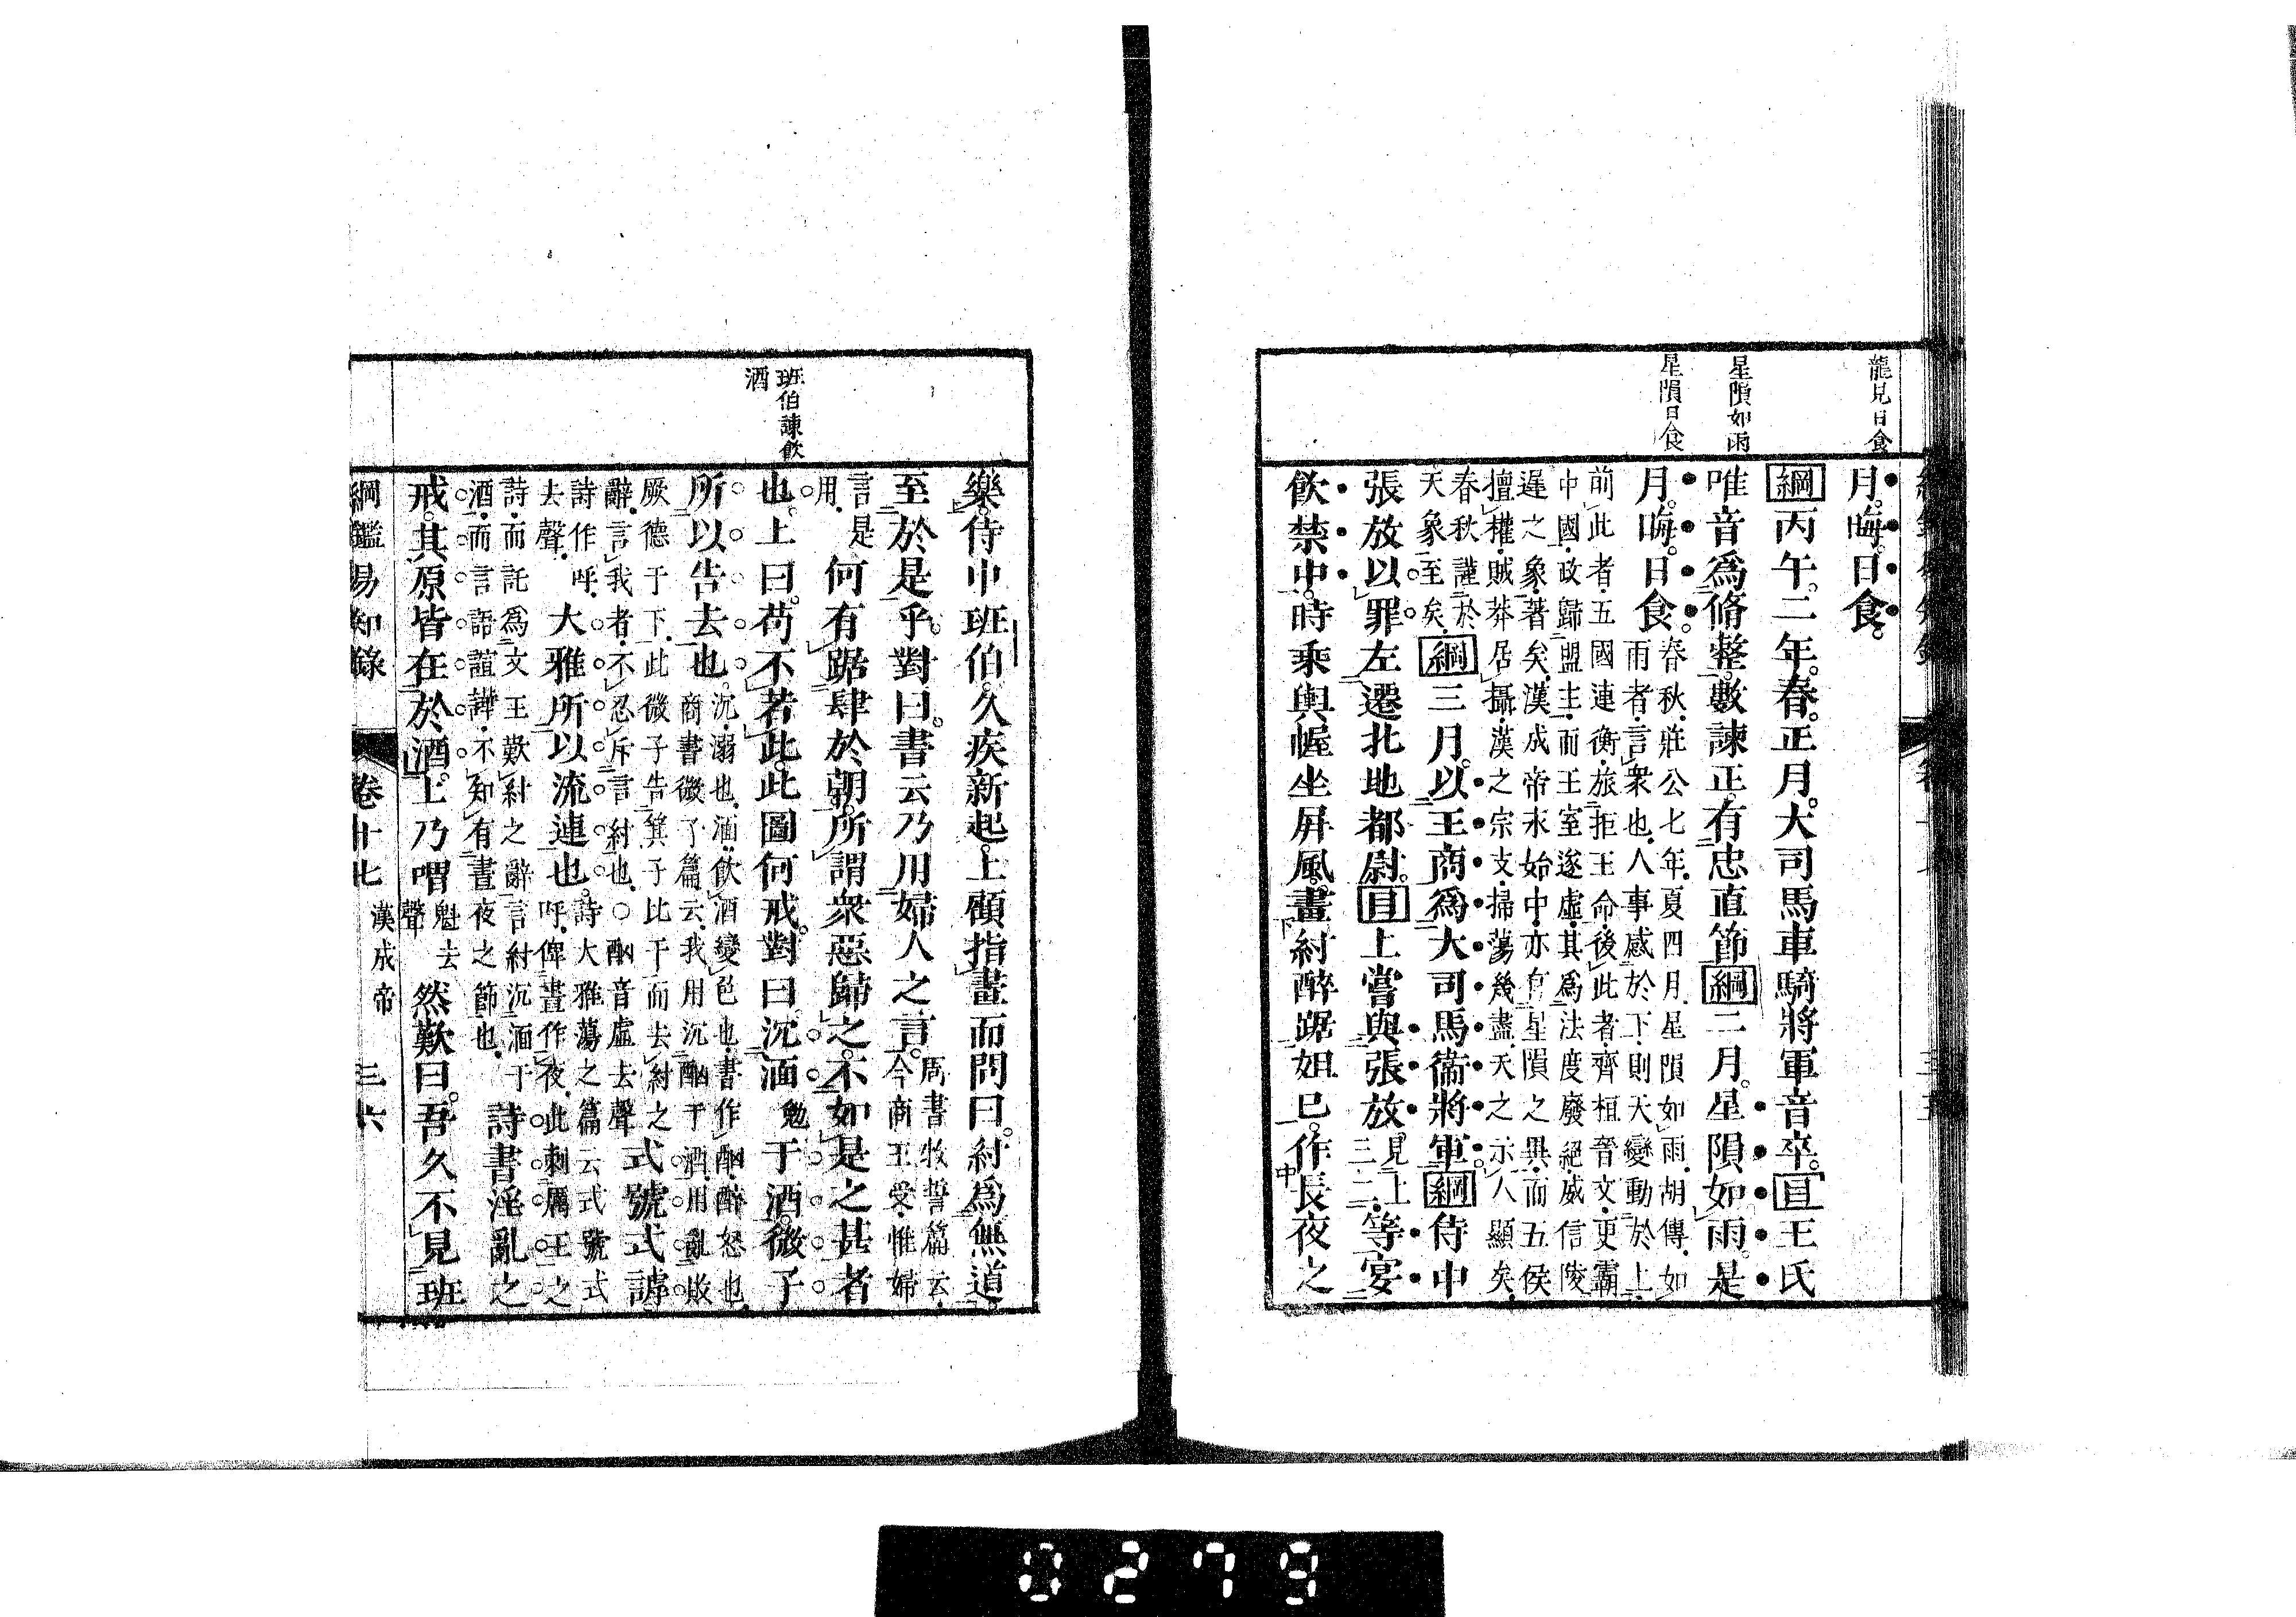 龍見日食
星隕如雨
星隕日食
月。晦。日食。
綱丙午。二年。春。正月。大司馬車騎將軍音卒。目王氏
唯音爲脩整。數諫正。有忠直節綱二月。星隕如雨。是
月。晦。日食。
春秋莊公七年。夏四月。星隕如雨。胡傳。如
雨者。言衆也。人事感於下。則天變動於上。
前此者。五國連衡。旅拒王命。後此者。齊桓晉文。更霸
中國。政歸盟主。而王室遂虛。其爲法度廢絕。威信陵
遲之象。著矣。漢成帝永始中。亦有星隕之異。而五侯
擅權。賊莽居攝。漢之宗支。掃蕩幾盡。天之示人顯矣。
春秋謹於
天象至矣。
綱三月。以王商爲大司馬衞將軍。綱侍中
張放以罪。左遷北地都尉。目上嘗與張放。
見上
三二。
等宴
飲禁中。時乘輿幄坐屏風。畫紂醉踞妲己。作長夜之
班伯諫飲
酒
樂。侍中班伯。久疾新起。上顧指畫而問曰。紂爲無道。
至於是乎。對曰。書云乃用婦人之言。
周書牧誓篇云。
今商王受。惟婦
言是
用。
何有踞肆於朝。所謂衆惡歸之。不如是之甚者
也。上曰。苟不若此。此圖何戒。對曰。沉湎
勉
于酒。微子
所以告去也。
沉。溺也。湎。飲酒變色也。書作酗。醉怒也。
商書微子篇云。我用沉酗于酒。用亂敗
厥德于下。此微子告箕子比干而去紂之
辭。言我者。不忍斥言紂也。○酗音虛去聲
式號式謼
詩作呼。
去聲。
大雅所以流連也。
詩大雅蕩之篇云。式號式
呼。俾晝作夜。此刺厲王之
詩。而託爲文王歎紂之辭。言紂沉湎于
酒。而言諦諠譁。不知有晝夜之節也。
詩書淫亂之
戒。其原皆在於酒。上乃喟
魁去
聲
然歎曰。吾久不見班
綱鑑易知錄
卷十七
漢成帝
三六
0279